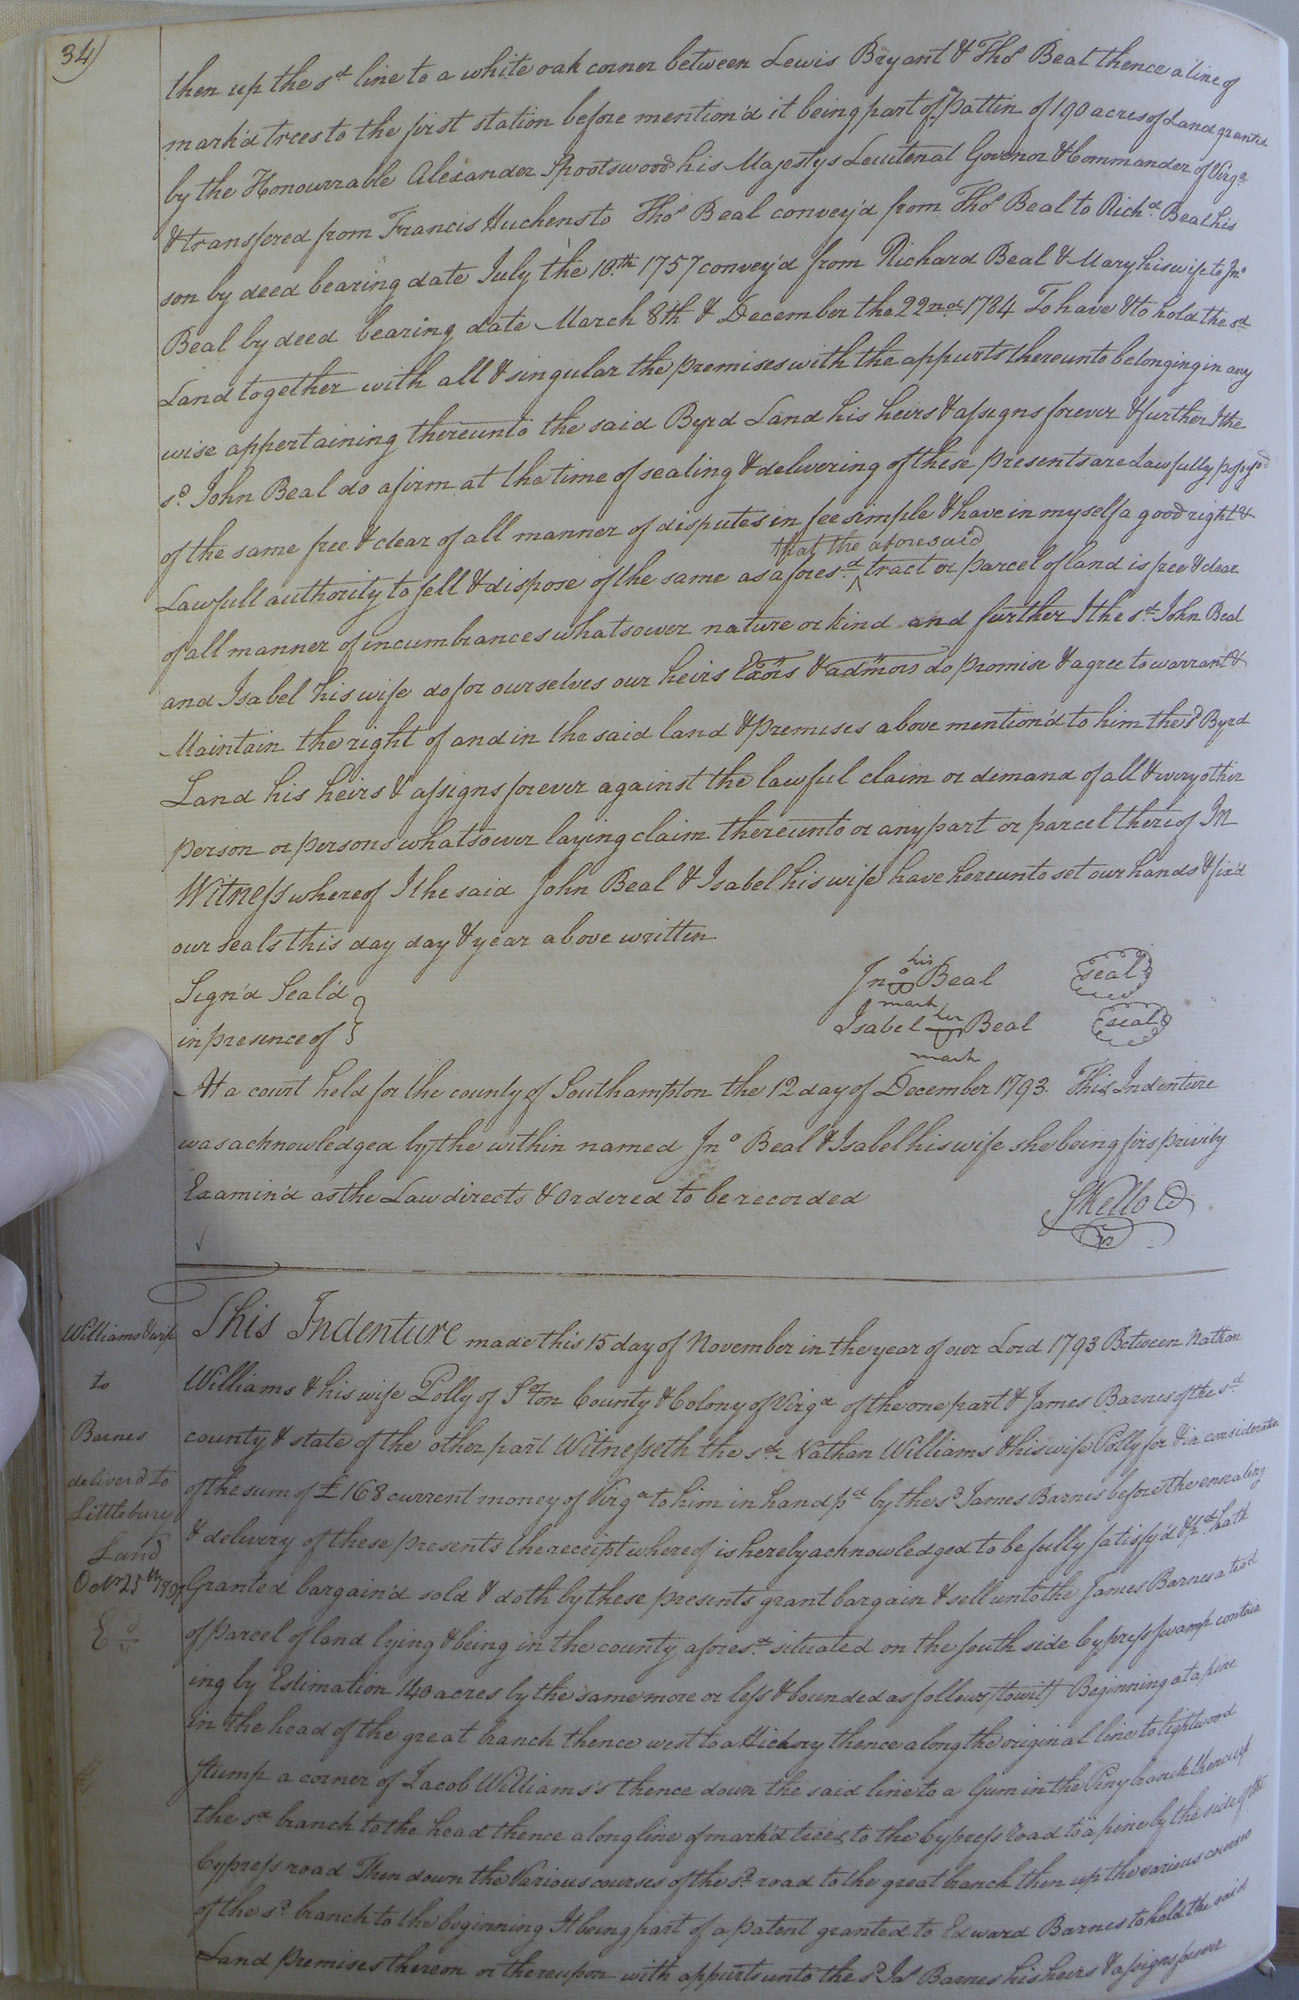 34)
then up the sd line to a white oak corner between Lewis Bryant & Thos Beal thence a line of
mark'd trees to the first station before mention'd it being part of Pattin of 190 acres of Land granted
by the Honourrable Alexander Spootswood his Majestys Leuitenal Govenor & Commander of Virga
& transfered from Francis Huchens to Thos Beal convey'd from Thos Beal to Richd Beal his
son by deed bearing date July the 10th 1757 convey'd from Richard Beal & Mary his wife to Jno
Beal by deed bearing date March 8th & December the 22nd 1784 To have & to hold the sd
Land together with all & singular the premises with the appurts thereunto belonging in any
wise appertaining thereunto the said Byrd Land his heirs & assigns forever & further I the
sd John Beal do afirm at the time of sealing & delivering of these presents are Lawfully possess'd
of the same free & clear of all manner of disputes in fee simple & have in myself a good right &
that the aforesaid
Lawfull authority to sell & dispose of the same as aforesd tract or parcel of land is free & clear
of all manner of incumbrances whatsower nature or kind and further I the sd John Beal
and Isabel his wife do for ourselves our heirs Exors & admors do promise & agree to warrant &
Maintain the right of and in the said land & premises above mention'd to him the sd Byrd
Land his heirs & assigns forever against the lawful claim or demand of all & every other
person or persons whatsower laying claim thereunto or any part or parcel thereof In
Witness whereof I the said John Beal & Isabel his wife have hereunto set our hands & fix'd
our seals this day day & year above written
Sign'd Seal'd
in presence of
his
Jno Beal seal
mark
her
Isabel Beal seal
mark
At a court held for the county of Southampton the 12 day of December 1793. This Indenture
was acknowledged by the within named Jno Beal & Isabel his wife she being firs privily
Examin'd as the Law directs & Ordered to be recorded
SKello Cl
Williams & wife
to
Barnes
deliverd to
Littlebury
Land
Octr 25th
This Indenture made this 15 day of November in the year of our Lord 1793 Between Nathan
Williams & his wife Polly of S'ton County & Colony of Virga of the one part & James Barnes of the sd
county & state of the other part Witnesseth the sd Nathan Williams & his wife Polly for & in consideration
of the sum of £168 current money of Virga to him in hand pd by the sd James Barnes before the ensealing
& delivery of these presents the receipt whereof is hereby acknowledged to be fully satisfy'd & pd hath
Granted bargain'd sold & doth by these presents grant bargain & sell unto the James Barnes a
of parcel of land lying & being in the county aforesd situated on the south side Cypress swamp contain
ing by Estimation 140 acres by the same more or less & bounded as follows (towit) Beginning at a pine
in the head of the great branch thence west to a Hickory thence along the original line to lightwood
stump a corner of Jacob Williams's thence down the said line to a Gum in the Piny branch thence up
the sd branch to the head thence a long line of mark'd trees to the Cypress Road to a pine by the side of the
Cypress road Then down the Various courses of the sd road to the great branch then up the various courses
of the sd branch to the beginning It being part of a patent granted to Edward Barnes to hold the said
Land premises thereon or thereupon with appurts unto the sd Jas Barnes his heirs & assigns forever